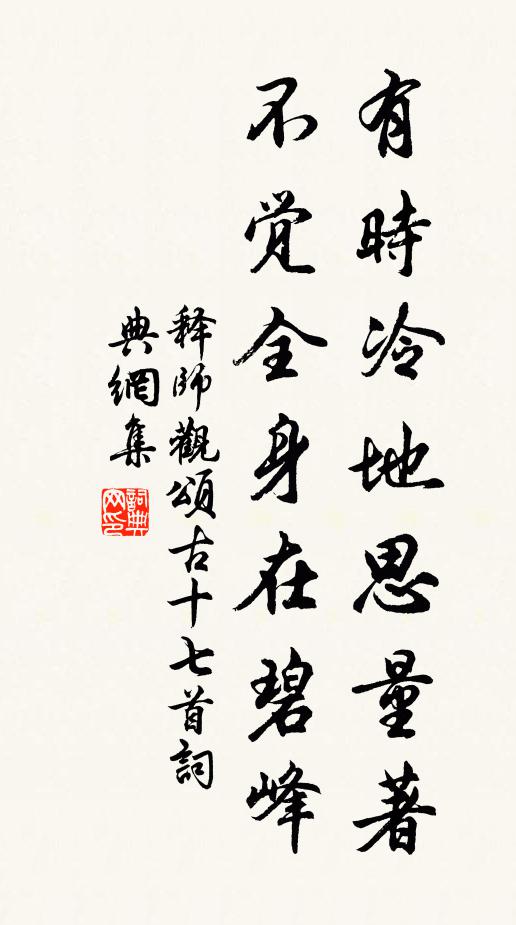 有時冷地思量著
不覚全身在碧峰
释師觀頌古十七首詞
典網集
詞典网印